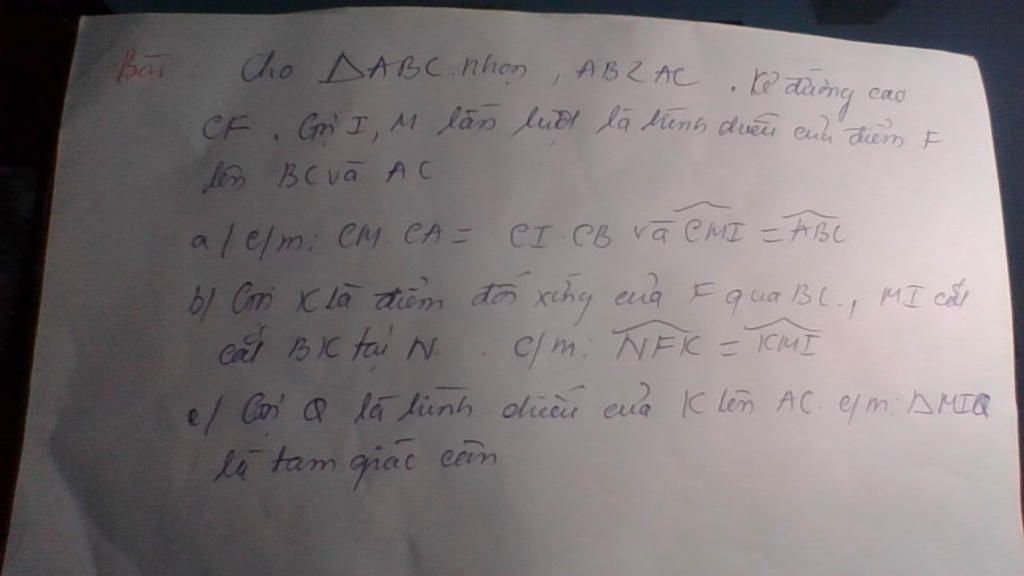 Bài Cho ΔABC nhọn, AB < AC. Kẻ đường cao
CF. Gọi I, M lần lượt là hình chiếu của điểm F
lên BC và AC
a/ C/m: CM.CA = CI.CB và \widehat{CMI} = \widehat{ABC}
b/ Gọi K là điểm đối xứng của F qua BC, MI cắt
cắt BK tại N. C/m: \widehat{NFK} = \widehat{KMI}
c/ Gọi Q là hình chiếu của K lên AC. C/m: ΔMIQ
là tam giác cân